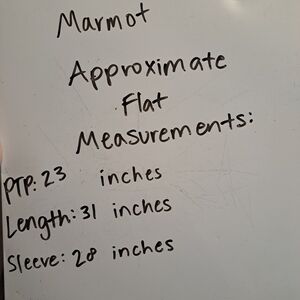 Marmot
Approximate
Flat
Measurements:
PTP: 23 inches
Length: 31 inches
Sleeve: 28 inches